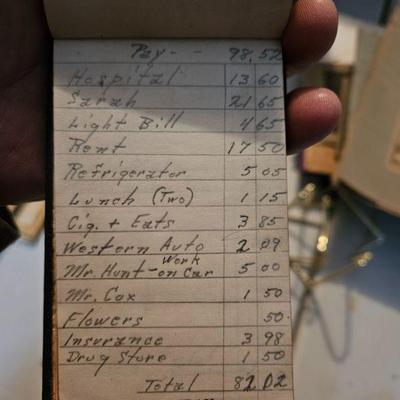 Pay - - 98.52
Hospital 13 60
Sarah 21 65
Light Bill 4 65
Rent 17 50
Refrigerator 5 05
Lunch (Two) 1 15
Cig. + Eats 3 85
Western Auto 2 09
Mr. Hunt - Work on Car 5 00
Mr. Cox 1 50
Flowers 50
Insurance 3 98
Drug Store 1 50
Total 82 02